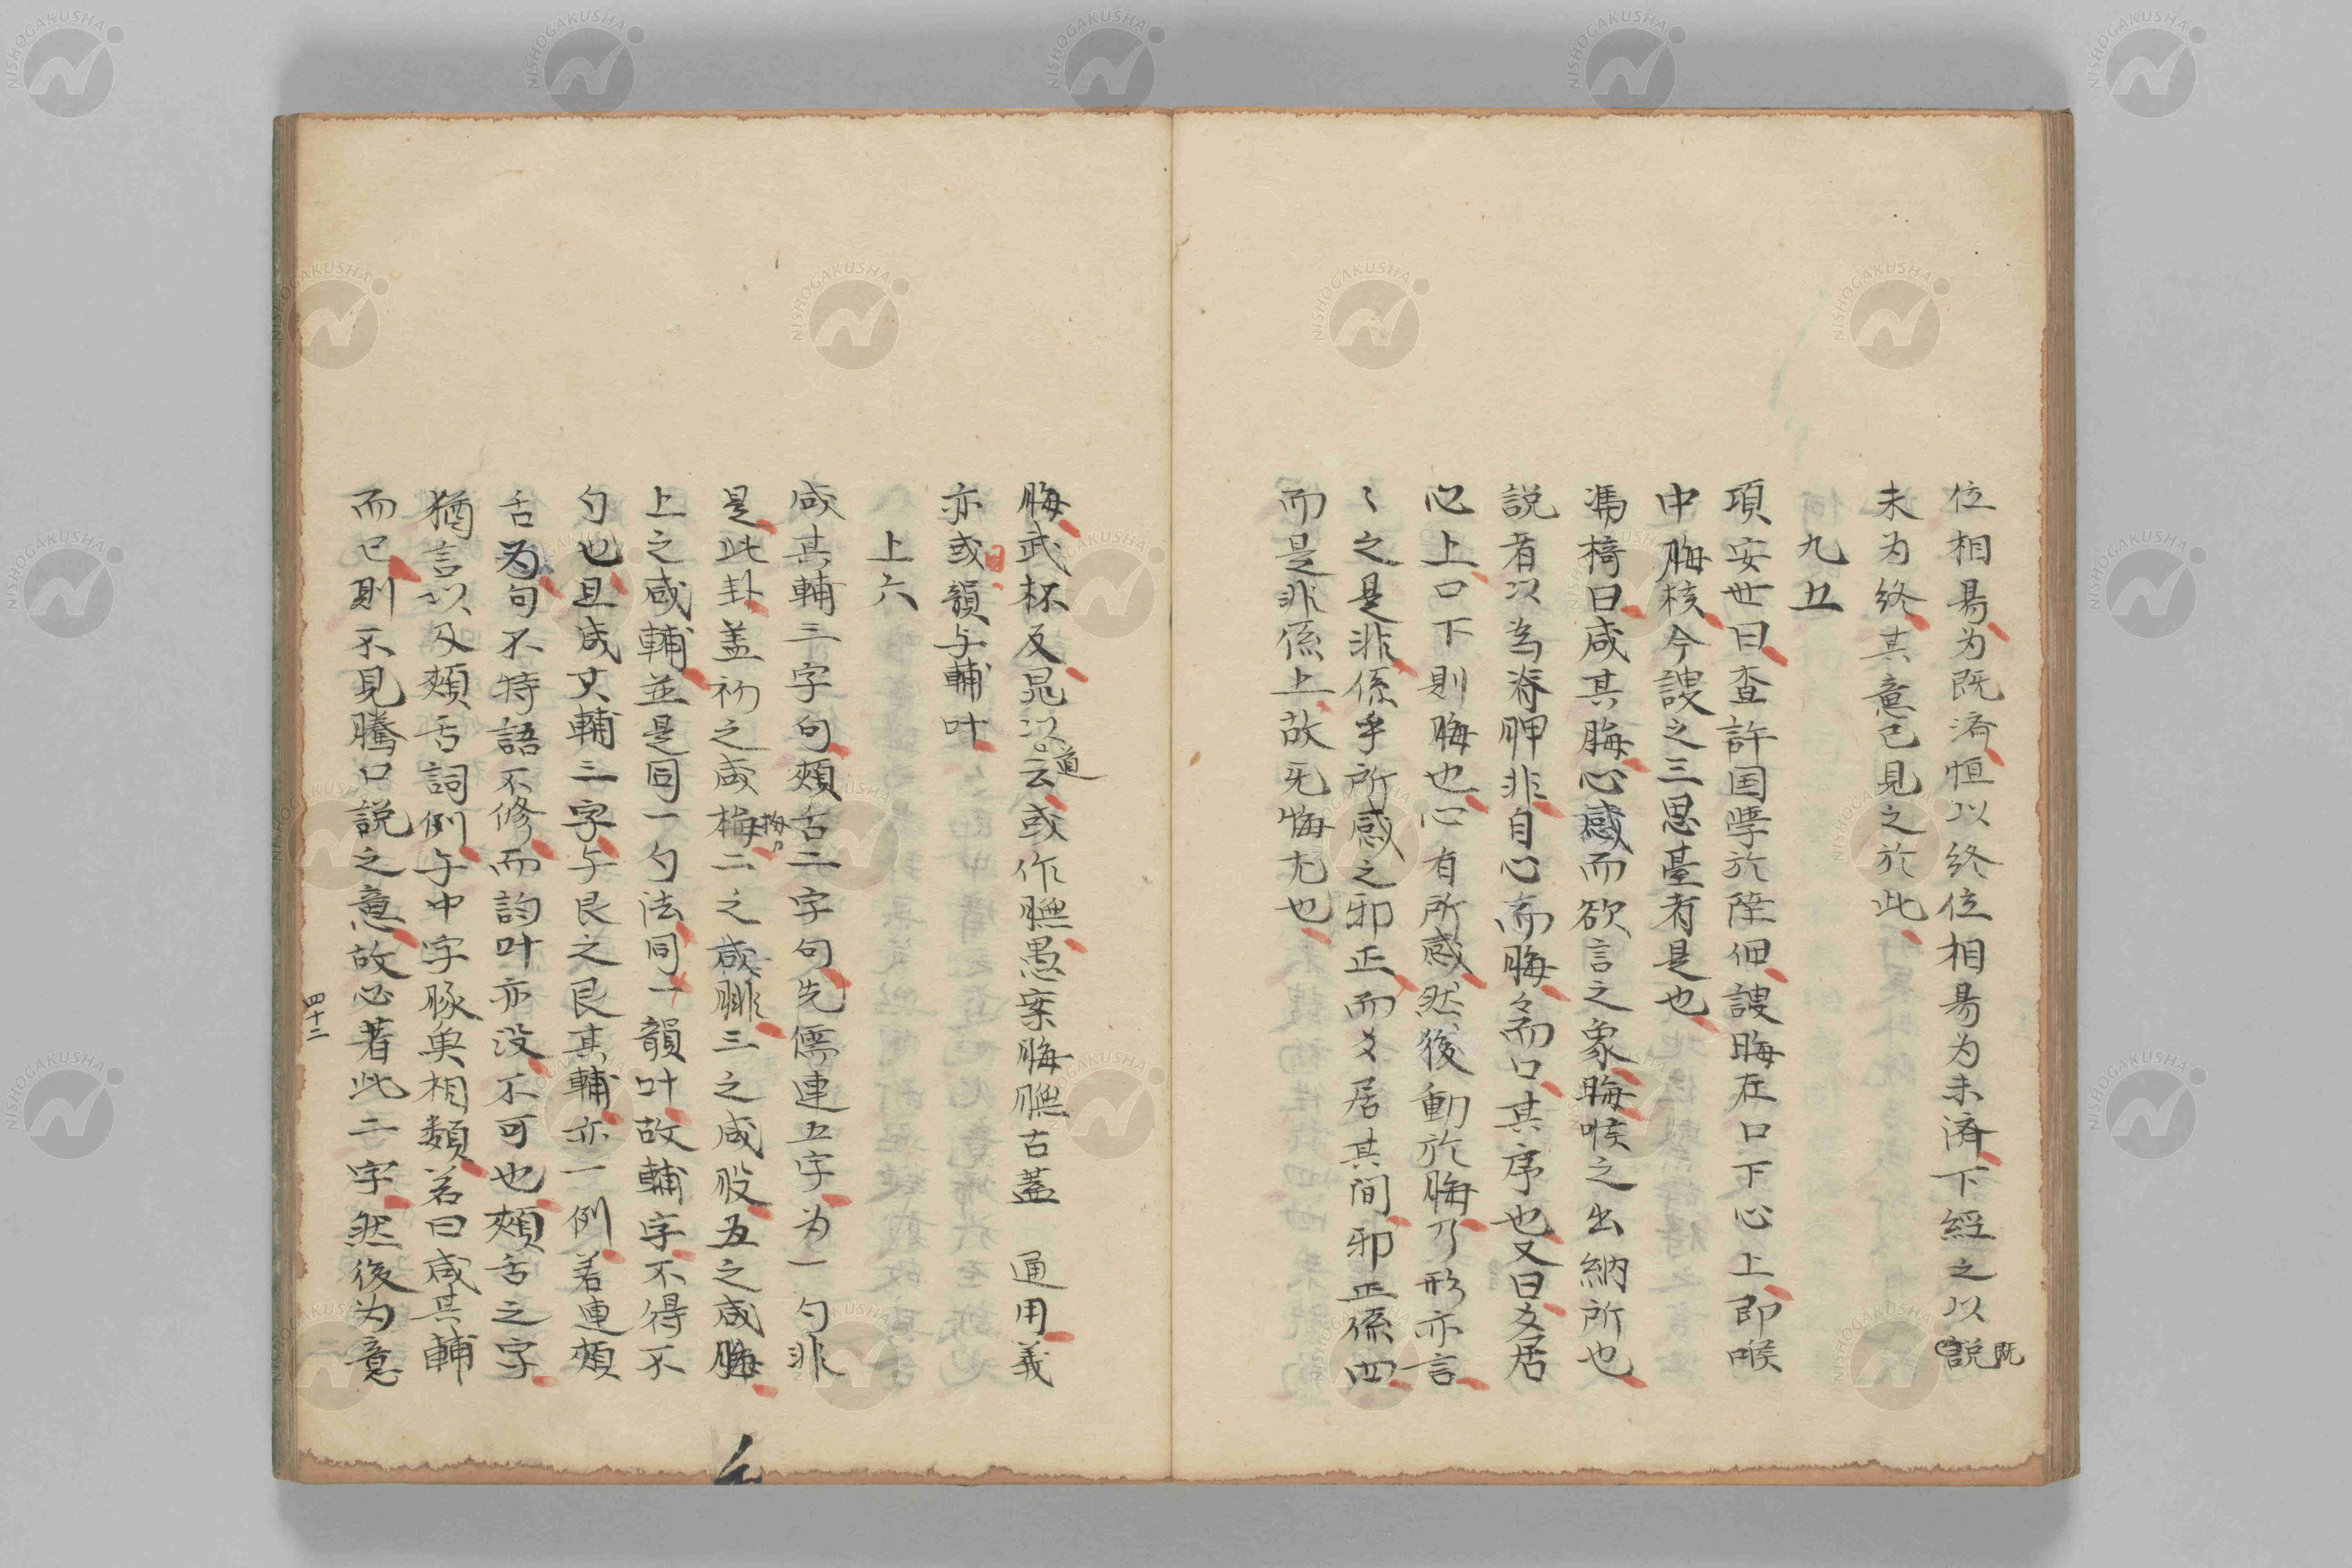 位相易为既済恒以終位相易为未済下經之以説
既
未为終其意已見之於此
九五
項安世曰査許国學於陸佃謏晦在口下心上即喉
中脢核今謏之三思臺者是也
馮椅曰咸其脢心感而欲言之象脢喉之出納所也
説者以为脊胛非自心而脢々而口其序也又曰爻居
心上口下則脢也心有所感然後動於脢乃形亦言
〻之是非係乎所感之邪正而爻居其间邪正係四
而是非係上故旡悔尤也
脢武杯反晁以云或作膴愚案脢膴古蓋　通用義
道
亦或韻与輔叶
曰
上六
咸其輔三字句頰舌二字句先儒連五字为一勺非
是此卦盖初之咸梅二之咸腓三之咸股五之咸脢
拇
上之咸輔並是同一勺法同一韻叶故輔字不得不
勺也且咸其輔三字与艮之艮其輔亦一例若連頰
舌为句不特語不修而韵叶亦没不可也頰舌之字
猶言以及頰舌詞例与中字豚魚相類若曰咸其輔
而已則不見騰口説之意故必著此二字然後为意
四十二